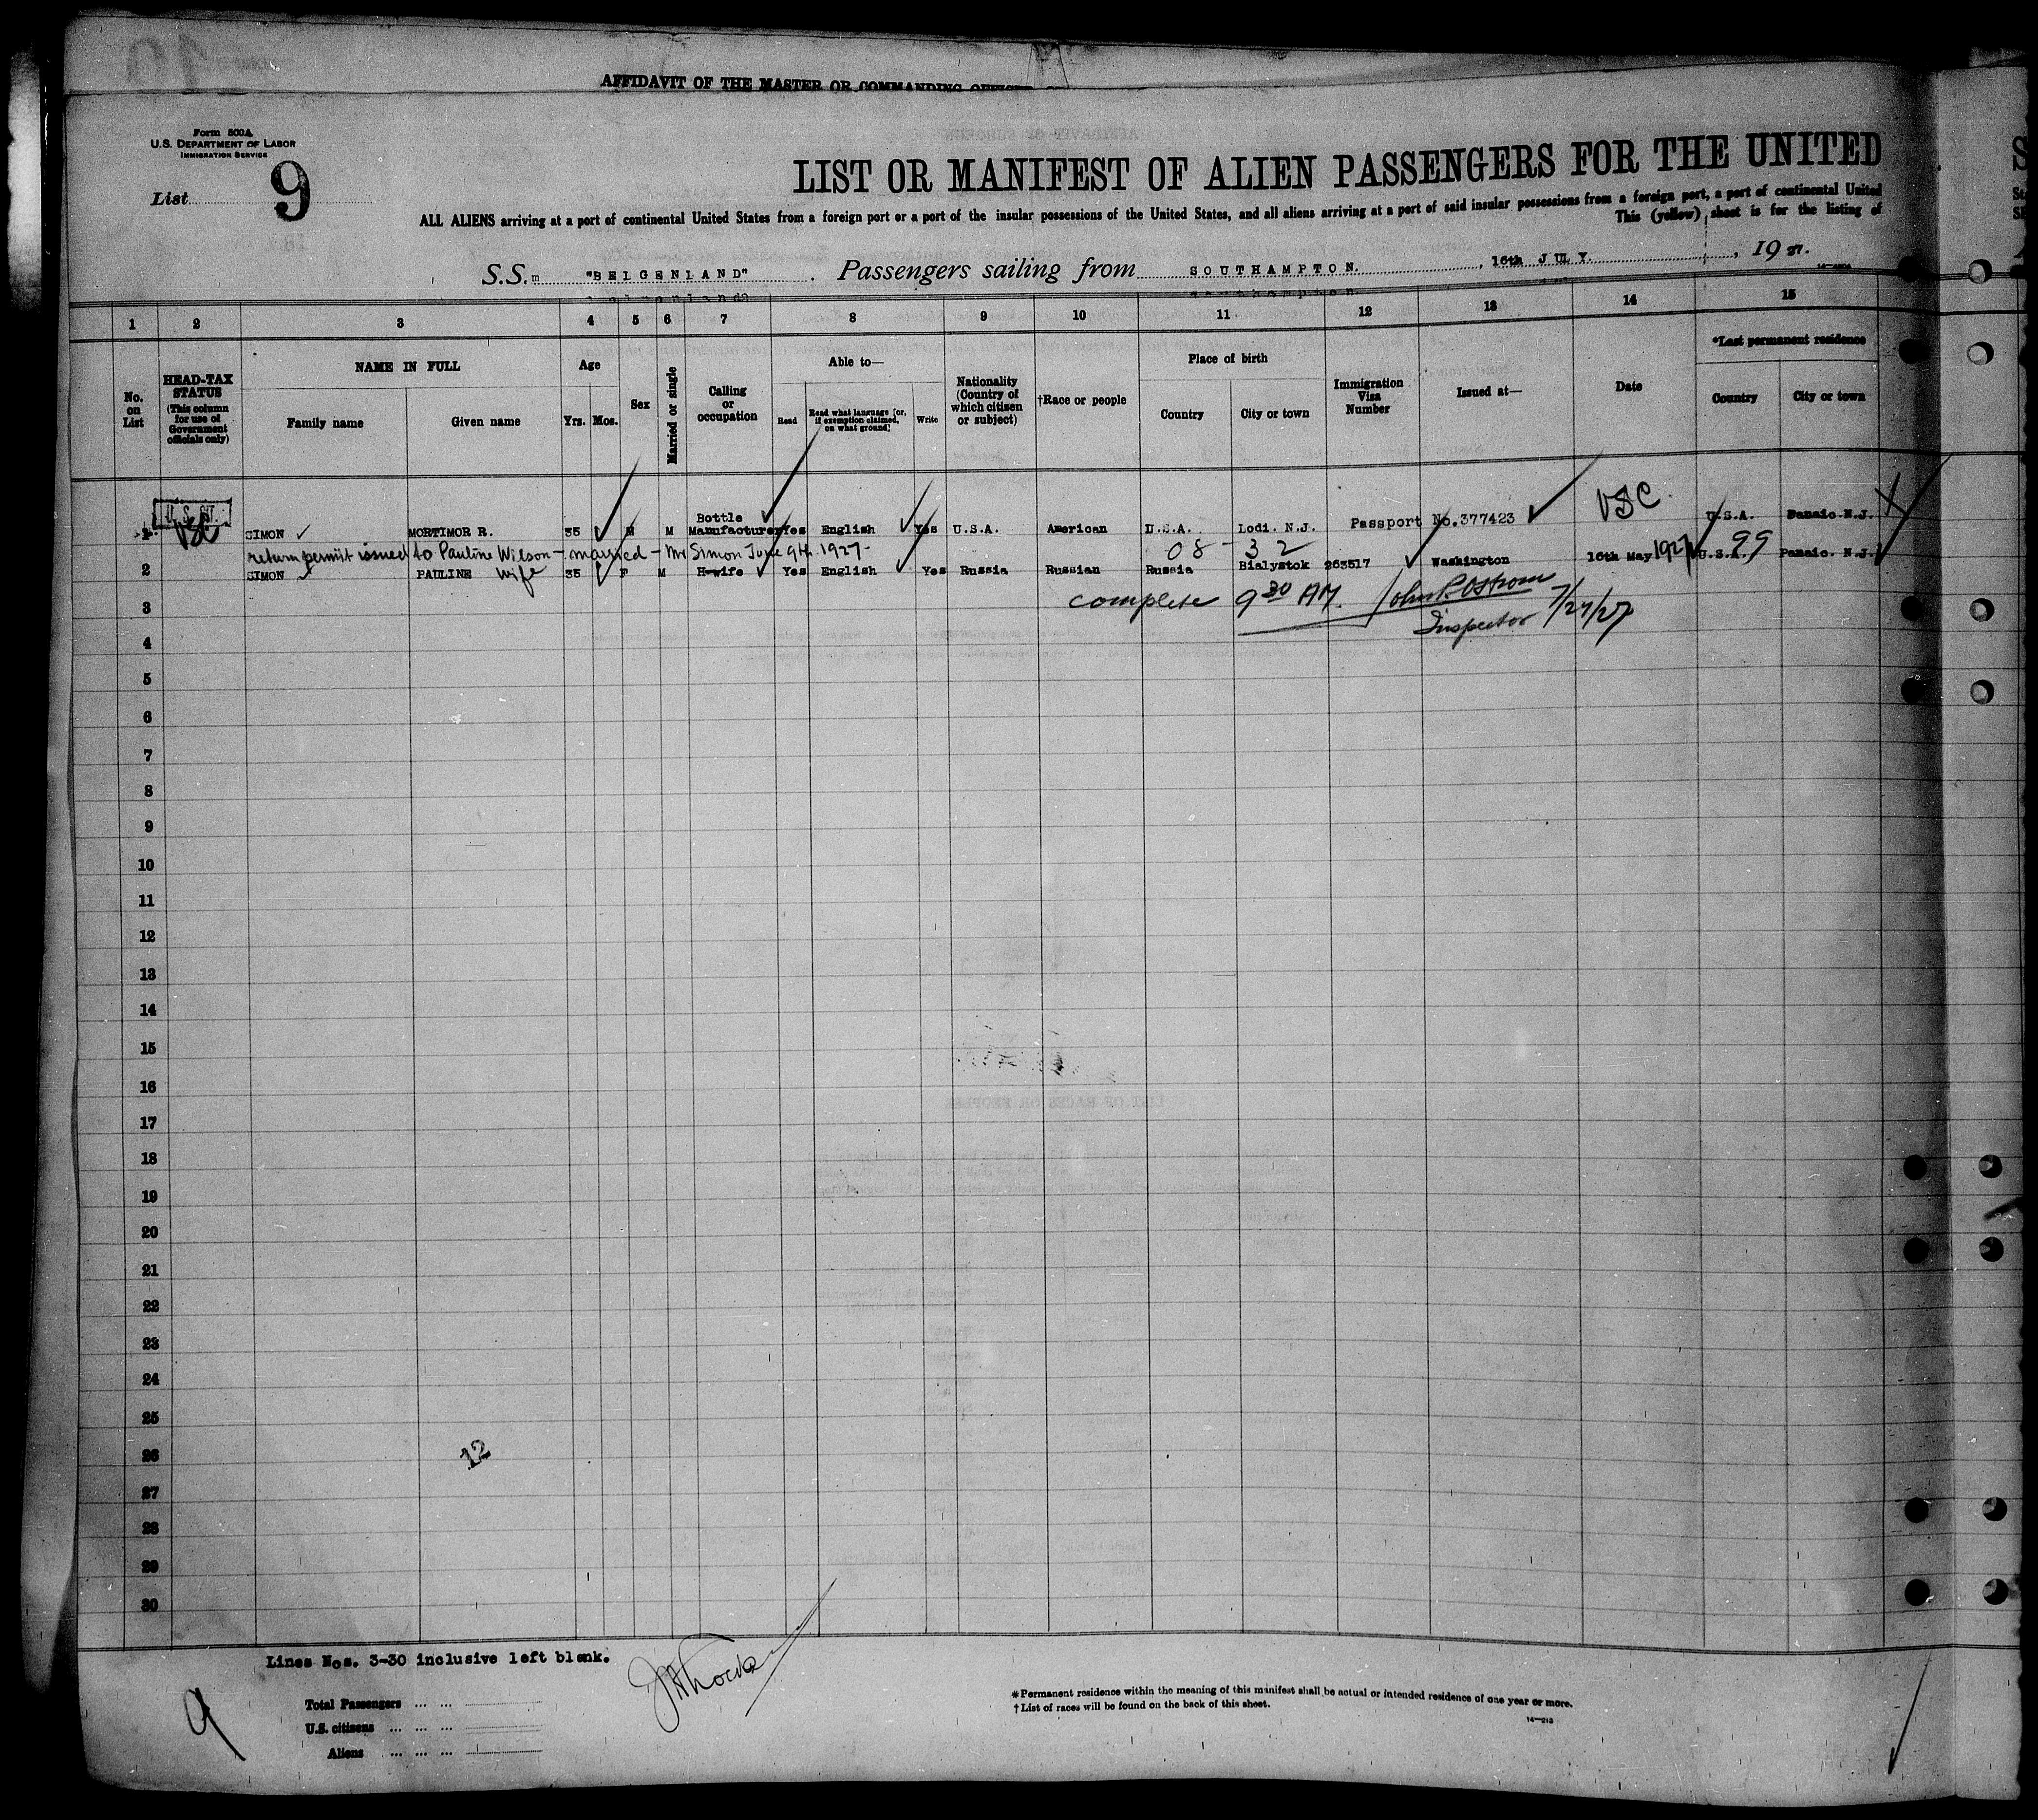 AFFIDAVIT OF THE MASTER OR COMMANDING OFFICER
Form 500A
U.S. DEPARTMENT OF LABOR
IMMIGRATION SERVICE
List 9
LIST OR MANIFEST OF ALIEN PASSENGERS FOR THE UNITED
ALL ALIENS arriving at a port of continental United States from a foreign port or a port of the insular possessions of the United States, and all aliens arriving at a port of said insular possessions from a foreign port, a port of continental United
This (yellow) sheet is for the listing of
S.S. "BELGENLAND". Passengers sailing from SOUTHAMPTON. , 16th JULY. , 1927.
1 2 3 4 5 6 7 8 9 10 11 12 13 14 15
No. on List
HEAD-TAX STATUS (This column for use of Government officials only)
NAME IN FULL
Family name Given name
Age
Yrs. Mos.
Sex
Married or single
Calling or occupation
Able to—
Read Read what language [or, if exemption claimed, on what ground] Write
Nationality (Country of which citizen or subject)
†Race or people
Place of birth
Country City or town
Immigration Visa Number
Issued at—
Date
*Last permanent residence
Country City or town
U.S. CIT.
USC
1 SIMON MORTIMOR R. 35 M M Bottle Manufacturer Yes English Yes U.S.A. American U.S.A. Lodi. N.J. Passport No.377423 USC U.S.A. Panaic N.J.
return permit issued to Pauline Wilson - married - Mr Simon June 9th 1927 - 08 - 32 99
2 SIMON PAULINE wife 35 F M H-wife Yes English Yes Russia Russian Russia Bialystok 263517 Washington 16th May 1927 U.S.A. Panaic. N.J.
complete 9 30 AM. John P. Ostrom 7/27/27
Inspector
3
4
5
6
7
8
9
10
11
12
13
14
15
16
17
18
19
20
21
22
23
24
25
26
12
27
28
29
30
Lines Nos. 3-30 inclusive left blank.
9
Total Passengers ... ...
U.S. citizens ... ... ...
Aliens ... ... ...
*Permanent residence within the meaning of this manifest shall be actual or intended residence of one year or more.
†List of races will be found on the back of this sheet.
14—213